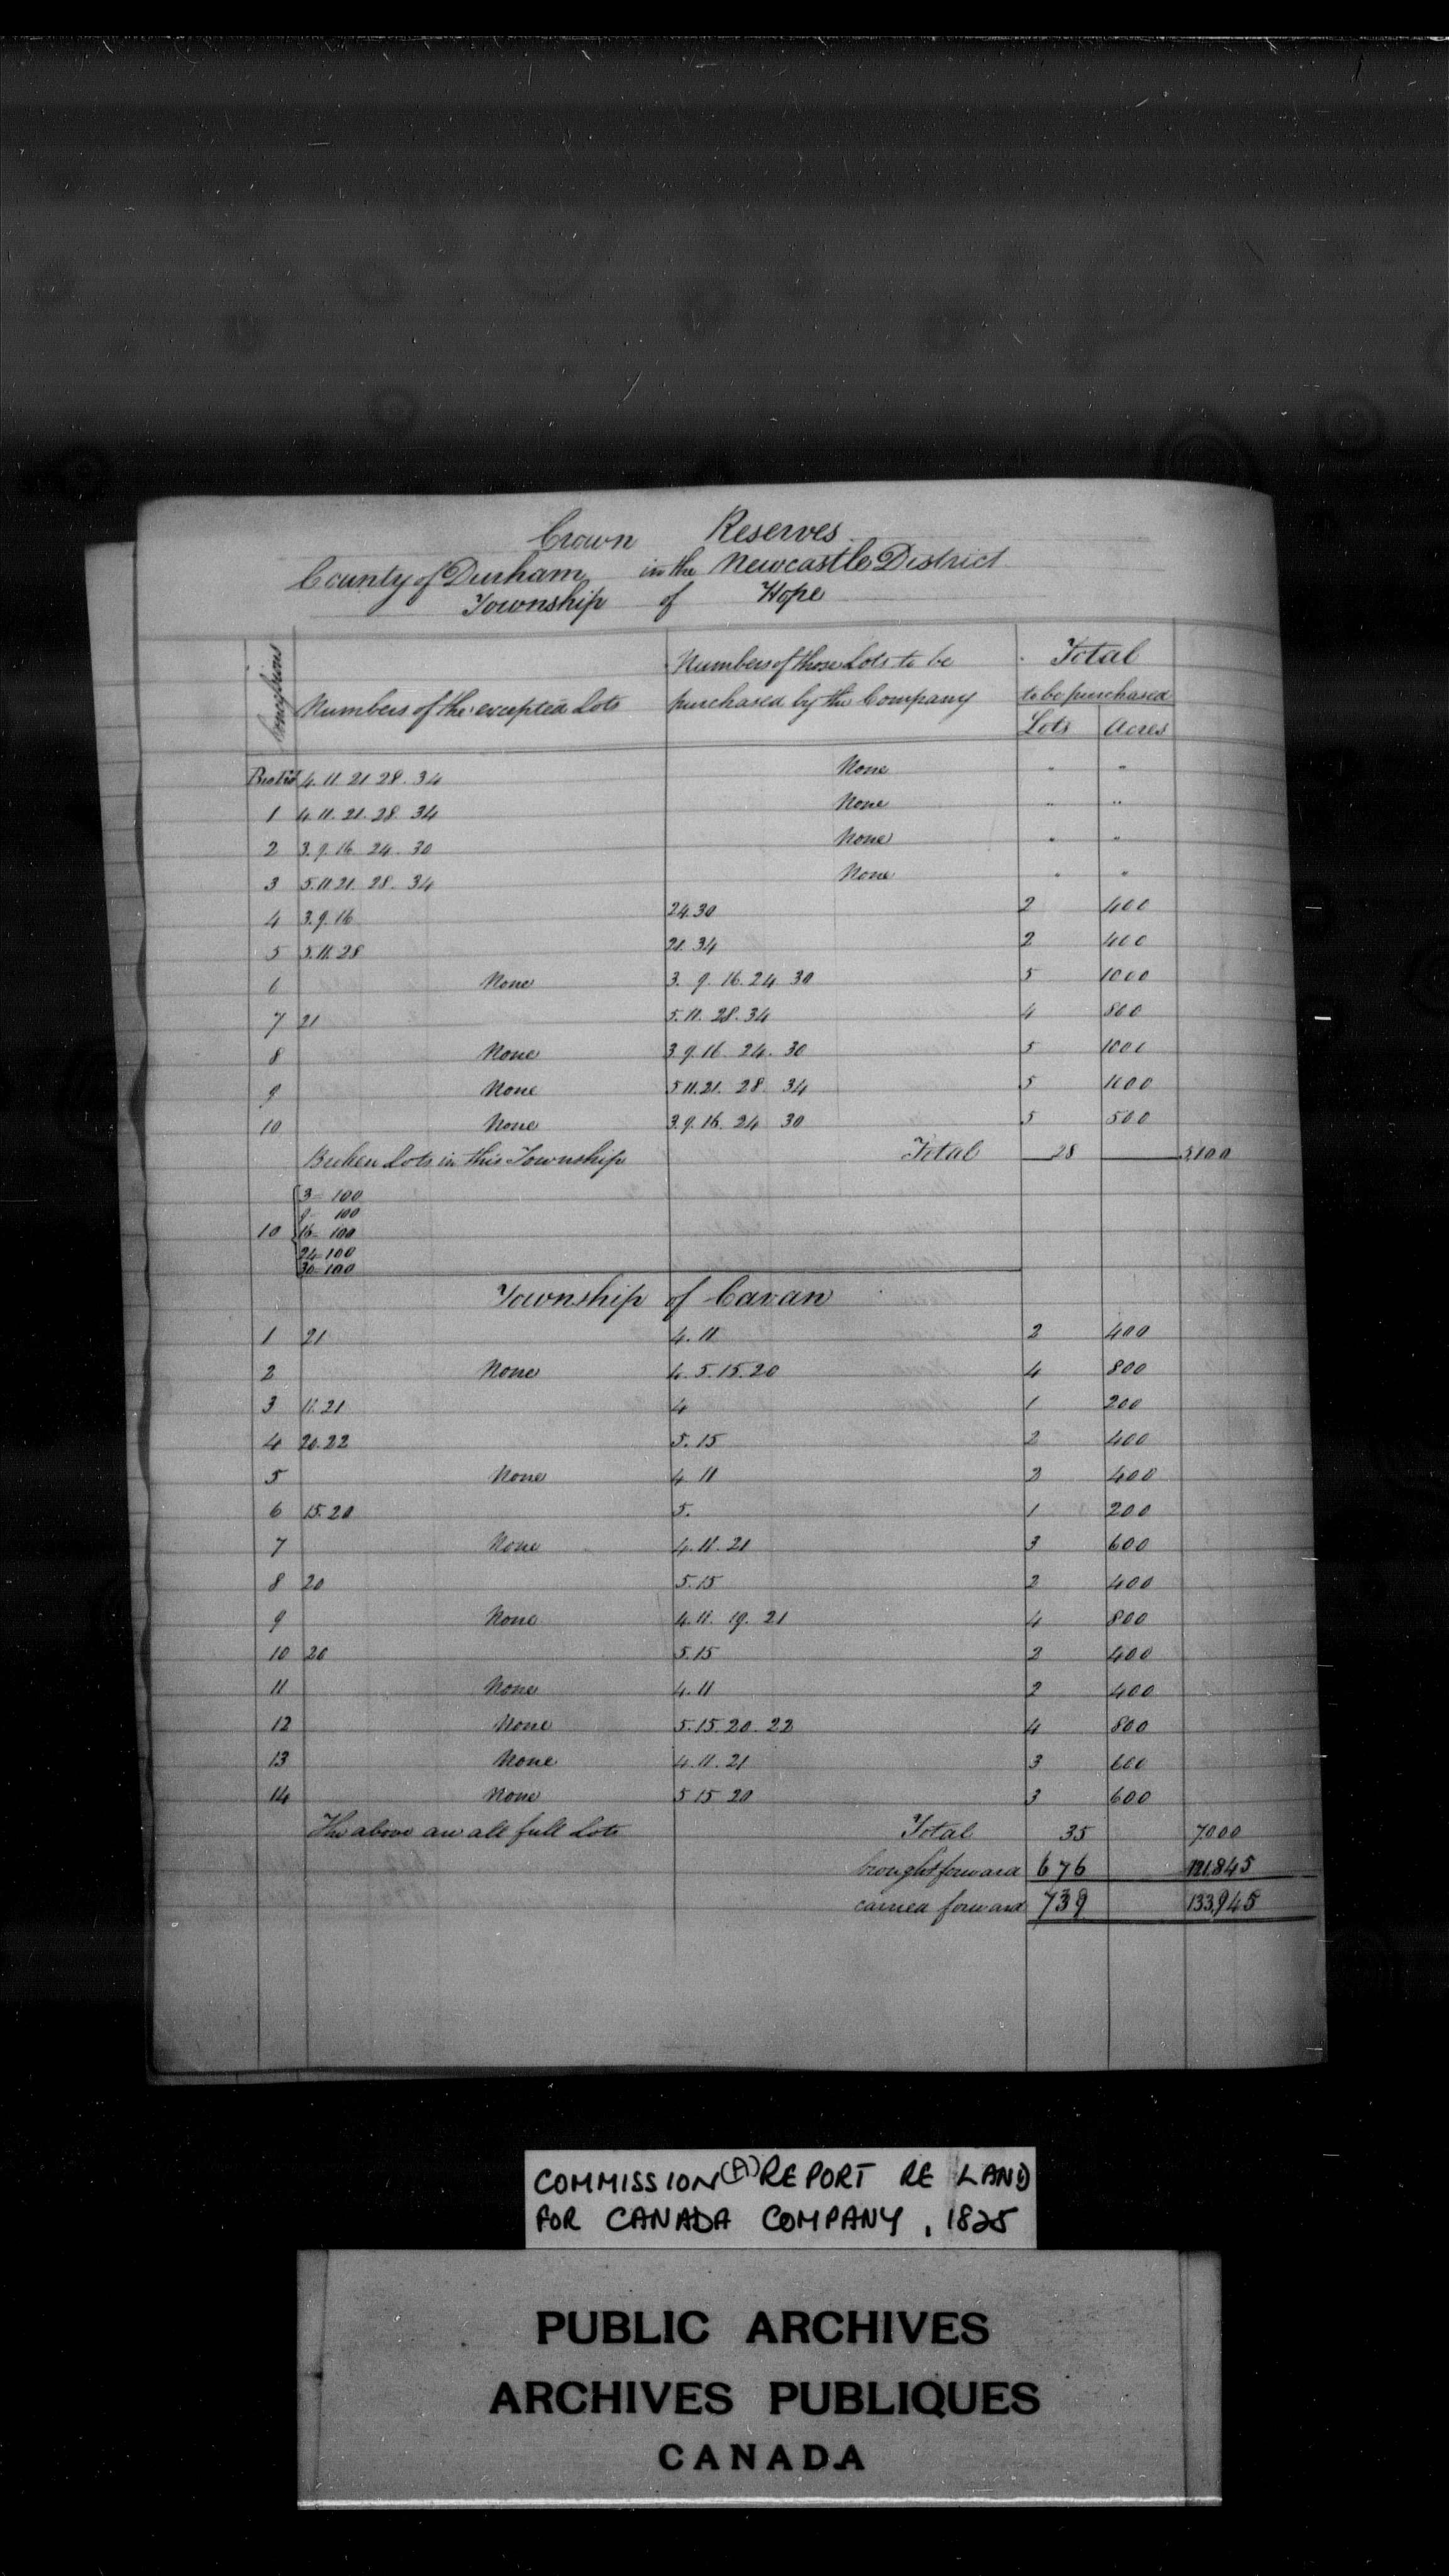 Crown Reserves
County of Durham in the Newcastle District
Township of Hope
Concessions
Numbers of the excepted Lots
Numbers of those Lots to be
purchased by the Company
Total
to be purchased
Lots Acres
4. 11. 21 28. 34 None " "
1 4. 11. 21. 28. 34 None " "
2 3. 9. 16. 24. 30 None " "
3 5. 11. 21. 28. 34 None " "
4 3. 9. 16 24. 30 2 400
5 5. 11. 28 21. 34 2 400
6 None 3. 9. 16. 24 30 5 1000
7 21 5. 11. 28. 34 4 800
8 None 3 9. 16. 24. 30 5 1000
9 None 5 11. 21. 28. 34 5 1000
10 None 3. 9. 16. 24 30 5 500
Broken Lots in this Township Total 28 5,100
3 – 100
9 100
10 16 – 100
24 – 100
30 – 100
Township of Cavan
1 21 4. 11 2 400
2 None 4. 5. 15. 20 4 800
3 11. 21 4 1 200
4 20. 22 5. 15 2 400
5 None 4 11 2 400
6 15. 20 5. 1 200
7 None 4. 11. 21 3 600
8 20 5. 15 2 400
9 None 4. 11. 19. 21 4 800
10 20 5. 15 2 400
11 None 4. 11 2 400
12 None 5. 15. 20. 22 4 800
13 None 4. 11. 21 3 600
14 None 5 15 20 3 600
The above are all full Lots Total 35 7000
brought forward 676 121,845
carried forward 739 133,945
COMMISSION (A) REPORT RE LAND
FOR CANADA COMPANY, 1825
PUBLIC ARCHIVES
ARCHIVES PUBLIQUES
CANADA